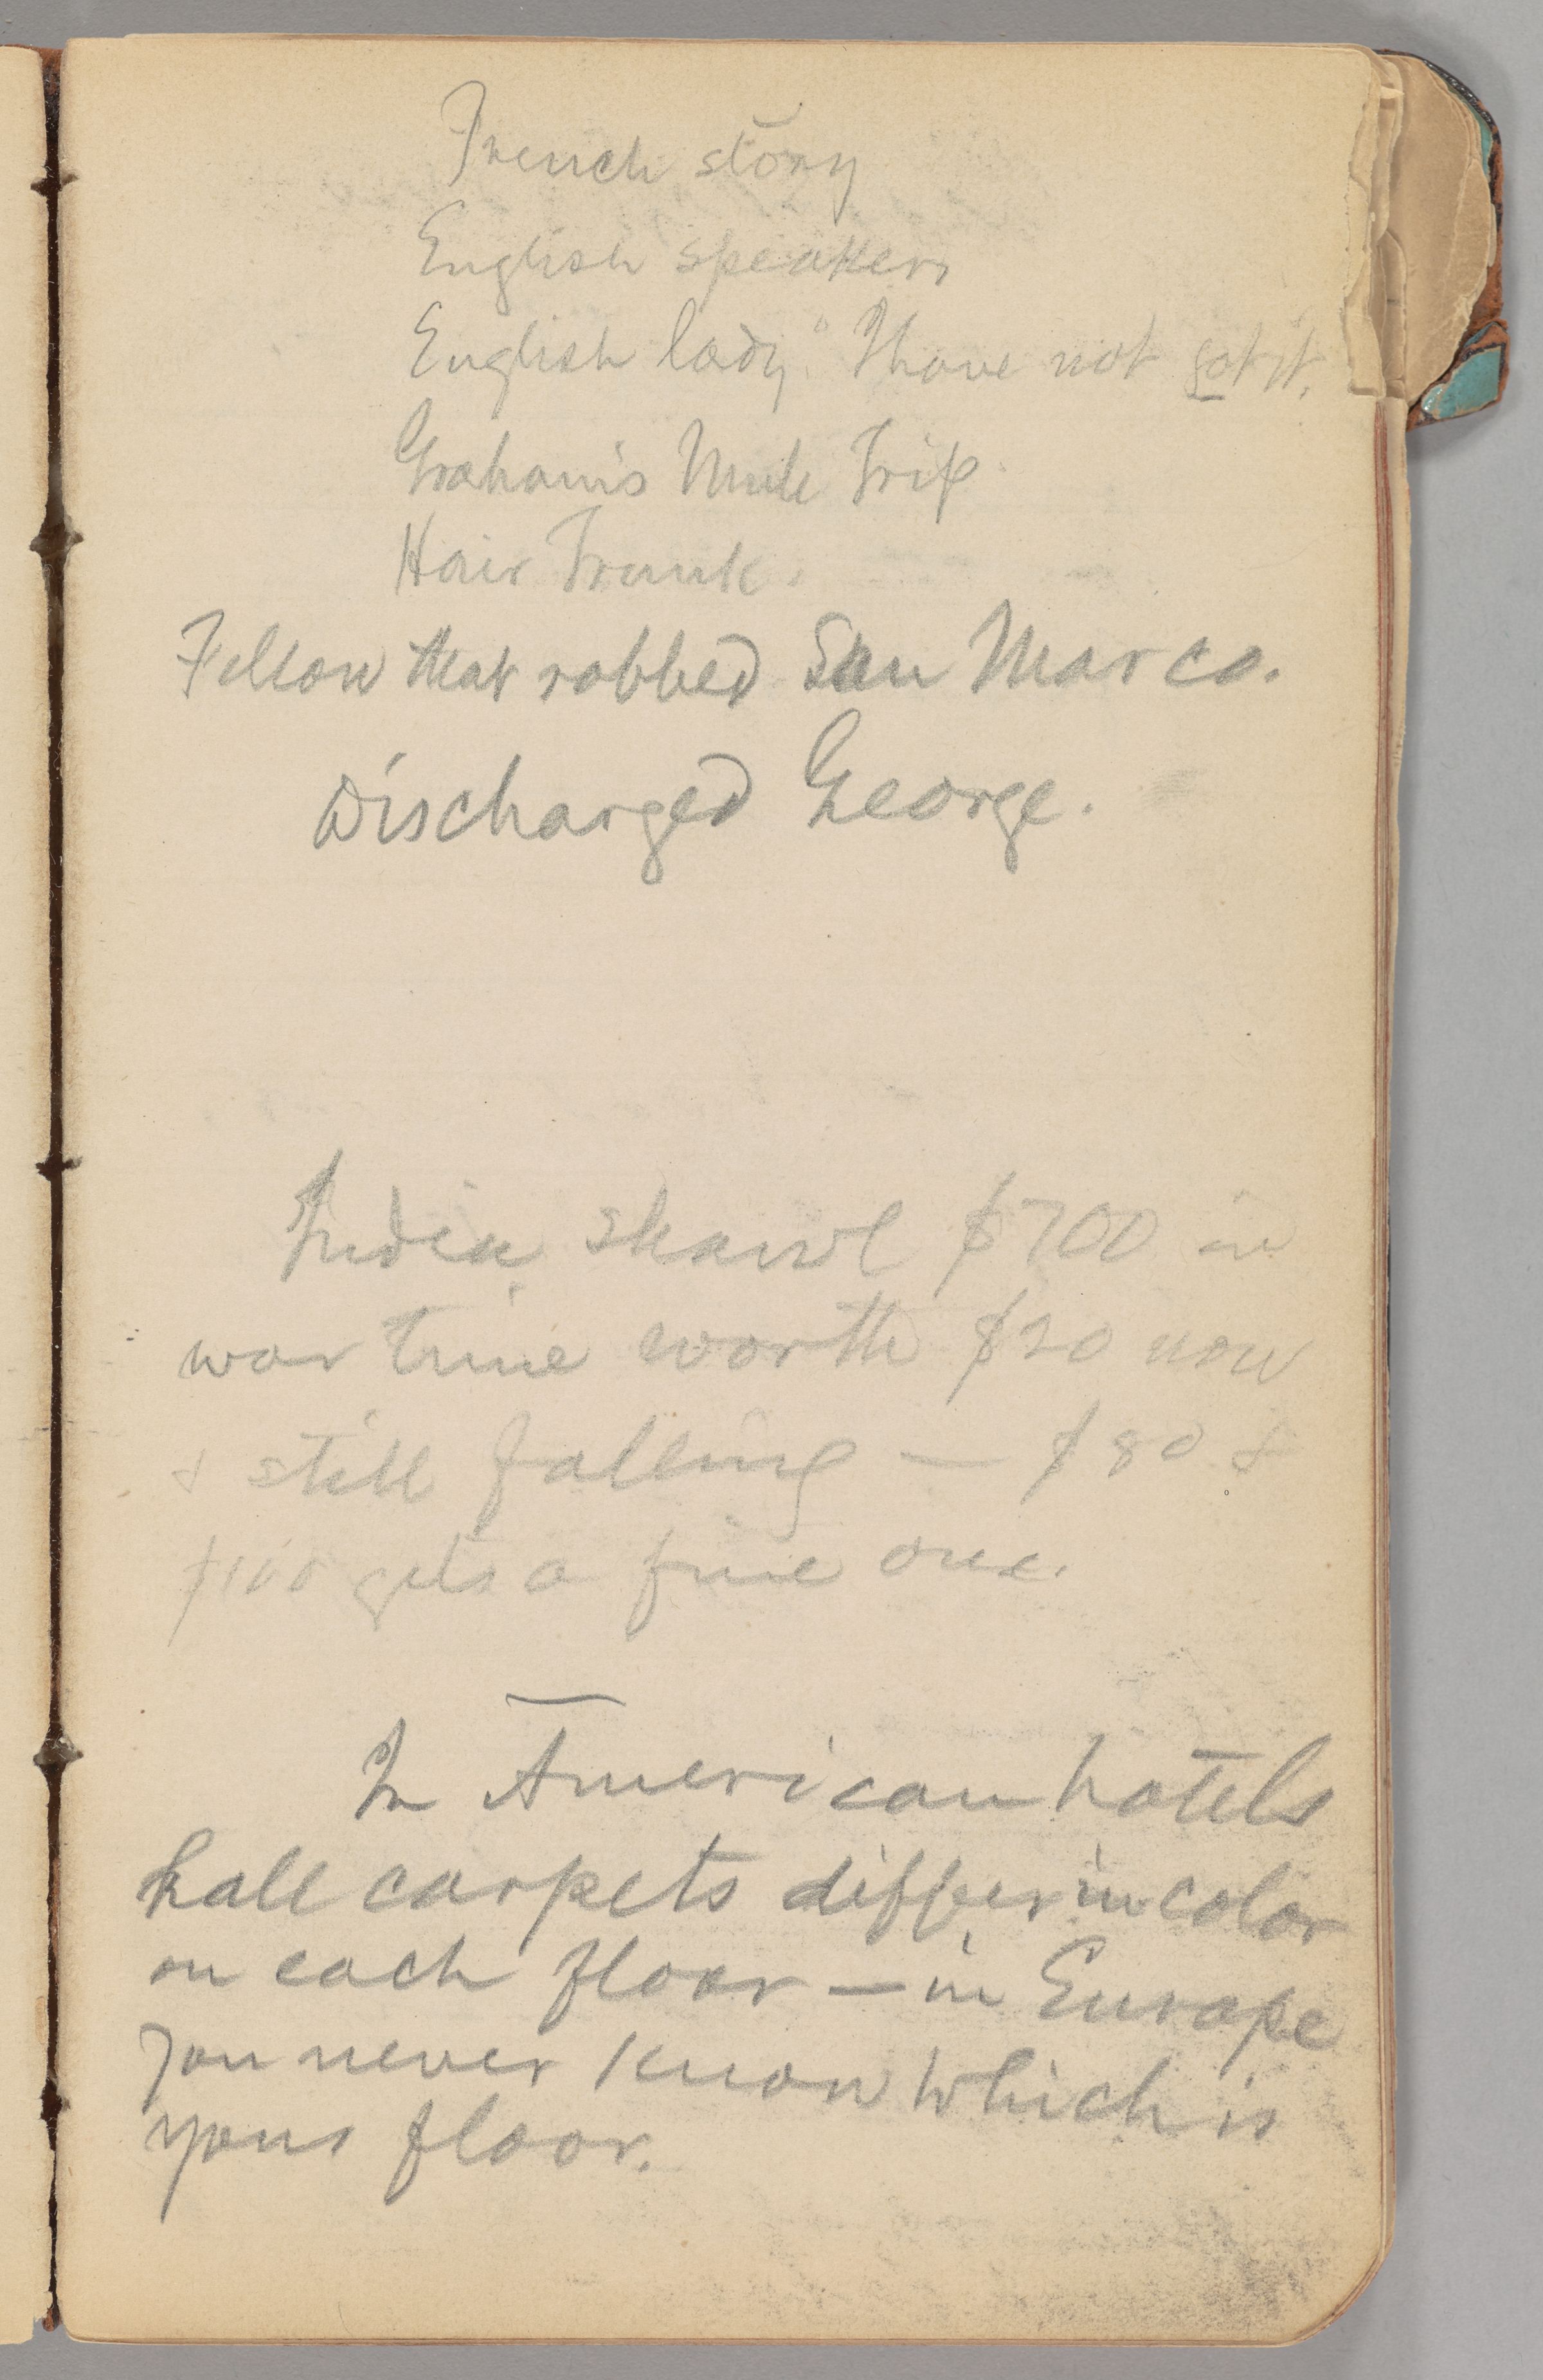 French story
English speakers
English lady "I have not got it."
Graham's Mule Trip.
Hair Trunk.
Fellow that robbed San Marco.
Discharged George.
India shawl $700 in
war time worth $20 now
& still falling — $80 &
$100 gets a fine one.
In American hotels
hall carpets differ in color
on each floor — in Europe
you never know which is
your floor.